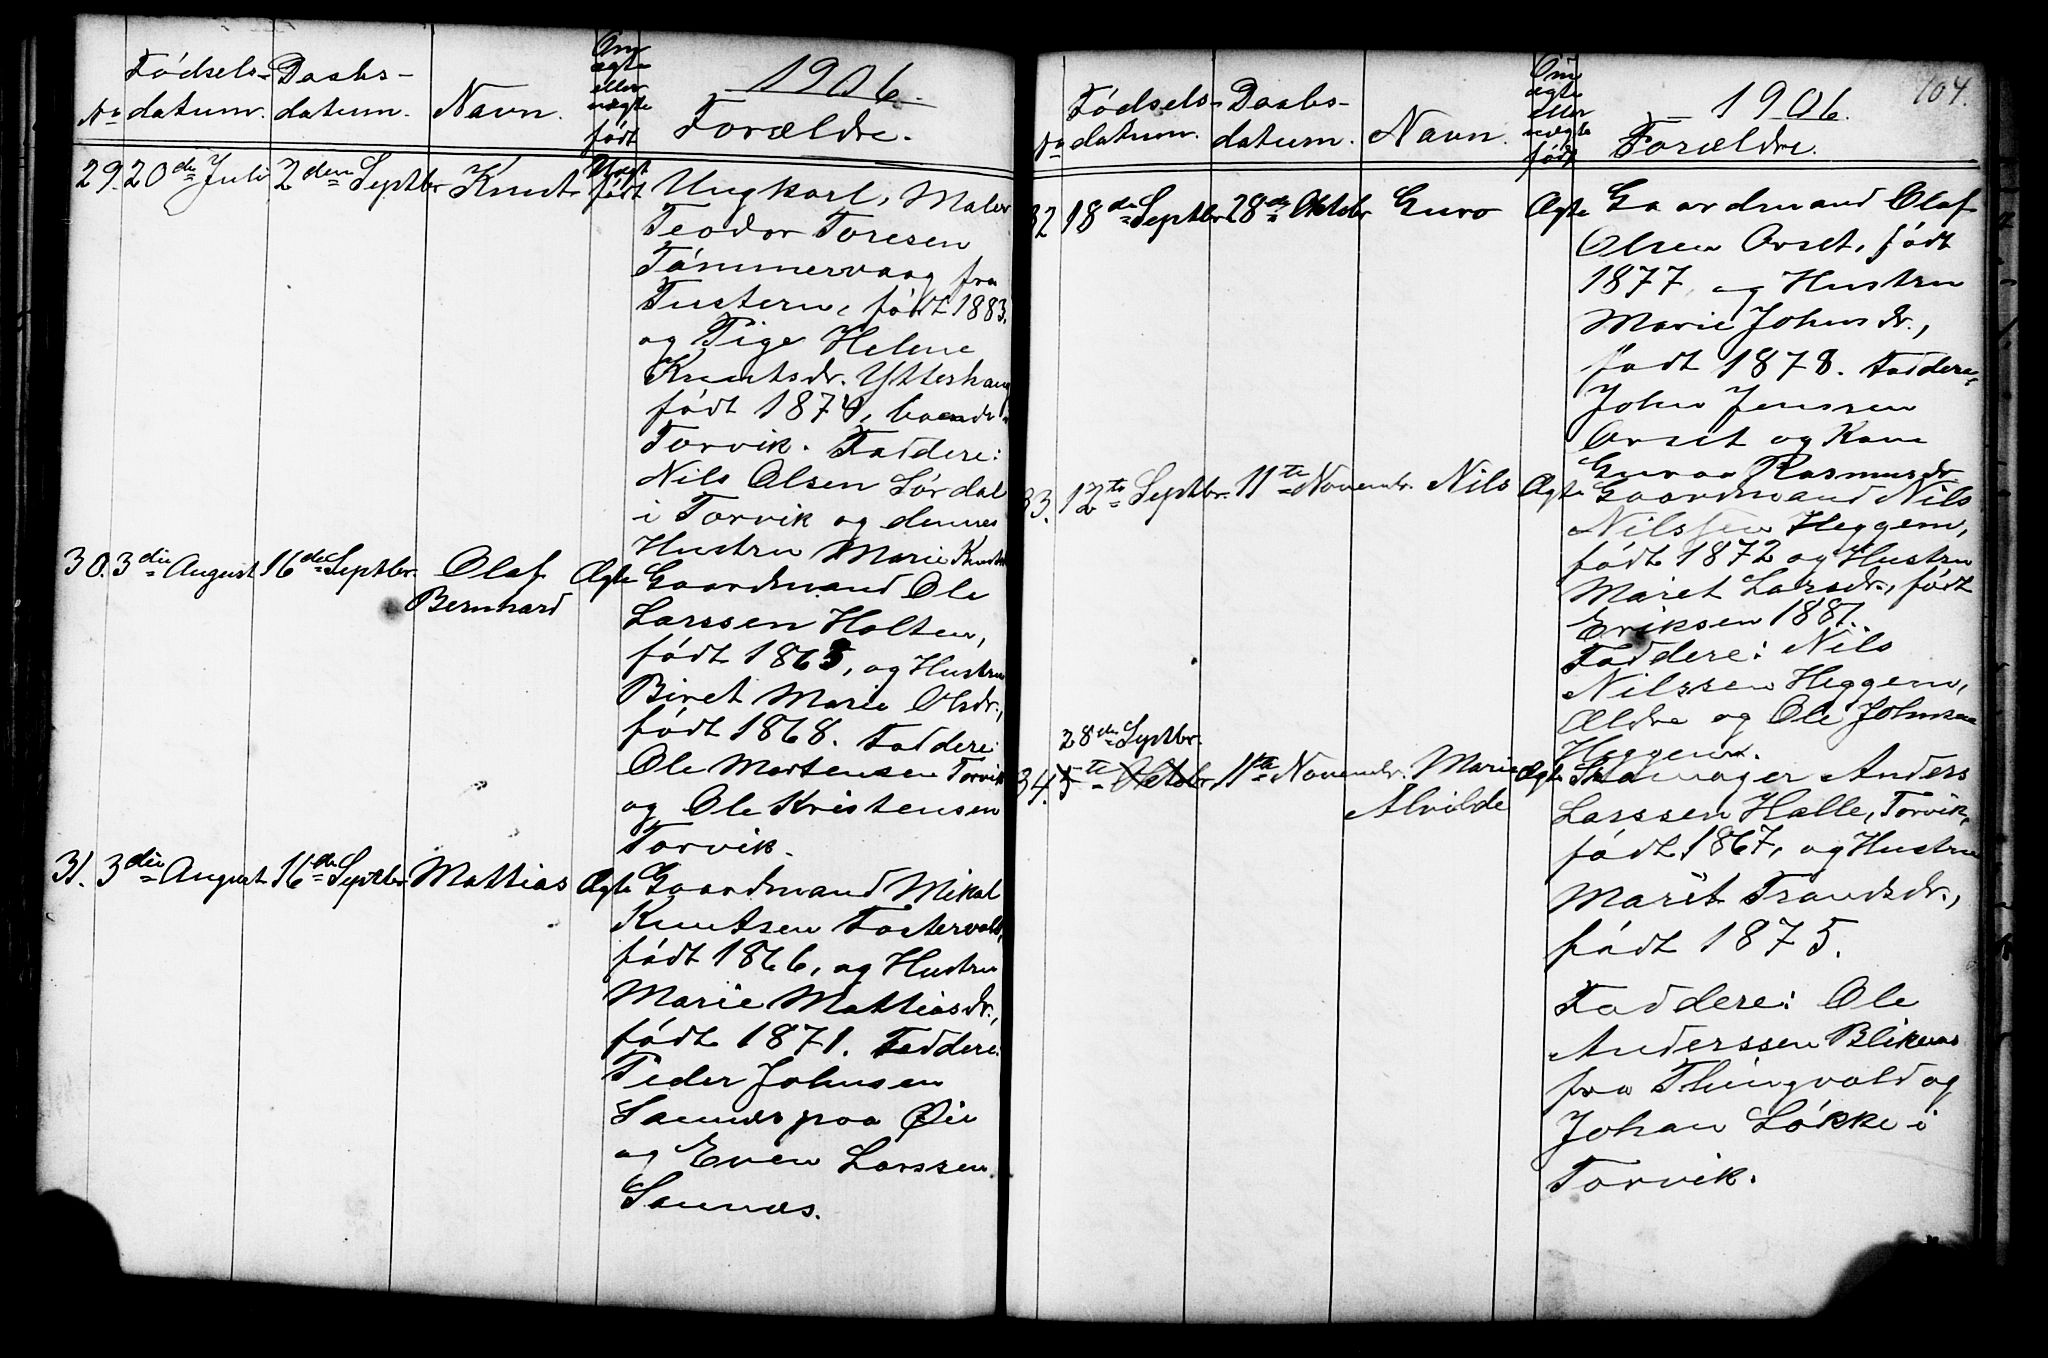 1906.
No
Fødsels-
datum.
Daabs-
datum.
Navn.
Om
ægte
eller
uægte
født
Forældre.
29. 20de Juli 2den Septbr Knut Uægt født
Ungkarl, Maler
Teodor Toresen
Tømmervaag fra
Tustern, født 1883.
og Pige Helene
Knutsdr. Ytterhaug
født 1874, boende
Torvik. Faddere:
Nils Olsen Sørdal
i Torvik og dennes
Hustru Marie Knutsdr
30. 3die August 16de Septbr. Olaf Bernhard Ægte
Gaardmand Ole
Larssen Holten,
født 1865, og Hustru
Beret Marie Olsdr.,
født 1868. Faddere:
Ole Mortensen Torvik
og Ole Kristensen
Torvik.
31. 3die August 16de Septbr Mattias Ægte
Gaardmand Mikal
Knutsen Fostervold,
født 1866, og Hustru
Marie Mattiasdr.,
født 1871. Faddere:
Peder Johnsen
Sannes paa Øie
og Even Larssen
Sannæs.
104.
1906.
No
Fødsels-
datum.
Daabs-
datum.
Navn.
Om
ægte
eller
uægte
født
Forældre.
32 18de Septbr 28de Oktobr Guro Ægte
Gaardmand Olaf
Olsen Orset, født
1877 og Hustru
Marie Johnsdr.,
født 1878. Faddere,
John Jenssen
Orset og Kone
Guroa Rasmusdr
33. 12te Septbr. 11te Novembr. Nils Ægte
Gaardmand Nils
Nilssen Heggem,
født 1872 og Hustru
Maret Larsdr., født
Eriksen 1881.
Faddere: Nils
Nilssen Heggem,
Ældre og Ole Johnsen
Heggem.
28de Septbr.
34. 5te Oktobr 11te Novembr. Marie Alvilde Ægte
Skomager Anders
Larssen Halle, Torvik,
født 1867, og Hustru
Marit Trondsdr.,
født 1875.
Faddere: Ole
Anderssen Blikenes
fra Thingvold og
Johan Løkke i
Torvik.